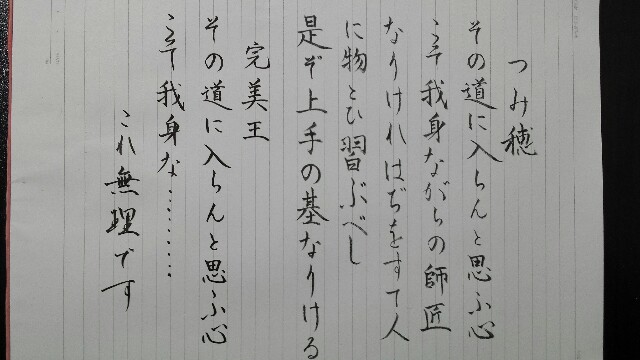 つみ穂
その道に入らんと思ふ心
こそ我身ながらの師匠
なりけれはぢをすて人
に物とひ習ぶべし
是ぞ上手の基なりける
完美王
その道に入らんと思ふ心
こそ我身な........
これ無理です